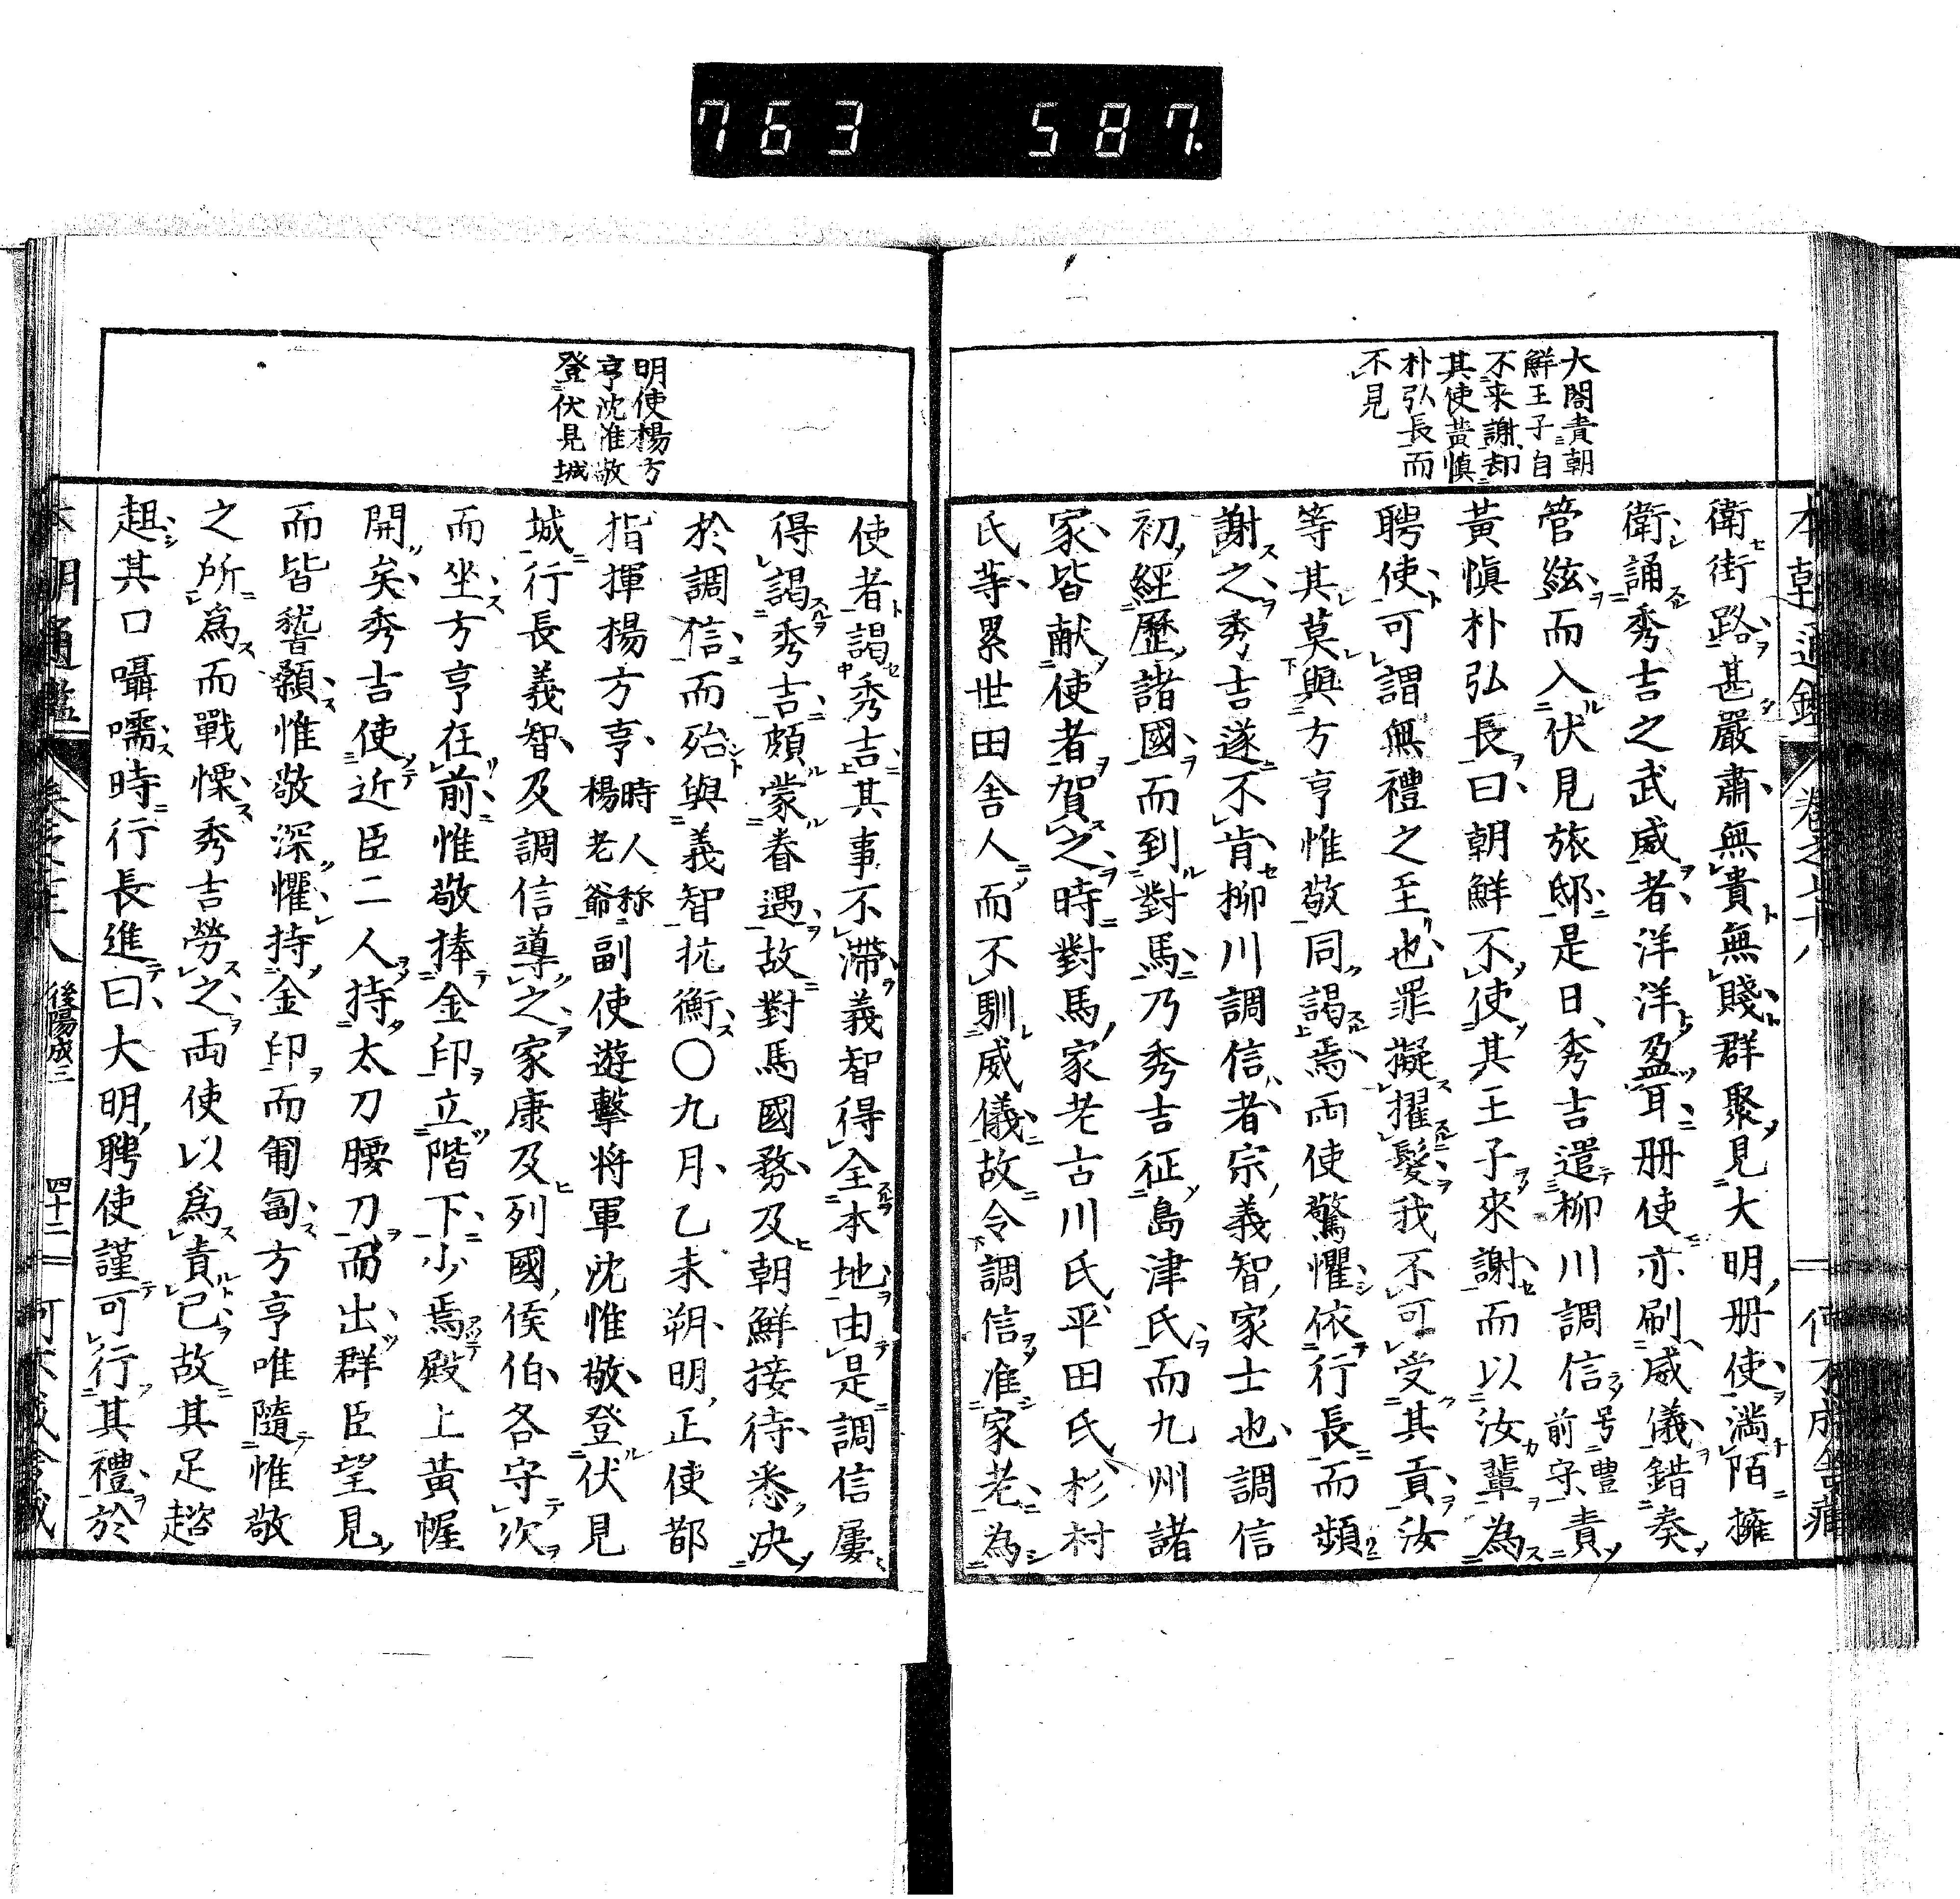 763 587.
大閤責朝
鮮王子自
不来謝却
其使黄愼
朴弘長而
不見
衛街路甚嚴肅無貴無賤群聚見大明册使満陌擁
衛誦秀吉之武威者洋洋盈耳册使亦刷威儀錯奏
管絃而入伏見旅邸是日秀吉遣柳川調信号豊前守責
黃愼朴弘長曰朝鮮不使其王子來謝而以汝輩為
聘使可謂無禮之至也罪擬擢髪我不可受其貢汝
等其莫與方亨惟敬同謁焉両使驚懼依行長而頻
謝之秀吉遂不肯柳川調信者宗義智家士也調信
初經歷諸國而到對馬乃秀吉征島津氏而九州諸
家皆献使者賀之時對馬家老古川氏平田氏杉村
氏等累世田舎人而不馴威儀故令調信准家老為
明使楊方
亨沈惟敬
登伏見城
使者謁秀吉其事不滯義智得全本地由是調信屢
得謁秀吉頗蒙眷遇故對馬國務及朝鮮接待悉决
於調信而殆與義智抗衡〇九月乙未朔明正使都
指揮楊方亨時人称楊老爺副使遊擊将軍沈惟敬登伏見
城行長義智及調信導之家康及列國侯伯各守次
而坐方亨在前惟敬捧金印立階下少焉殿上黃幄
開矣秀吉使近臣二人持太刀腰刀而出群臣望見
而皆稽顙惟敬深懼持金印而匍匐方亨唯隨惟敬
之所爲而戰慄秀吉勞之両使以爲責己故其足趑
趄其口囁嚅時行長進曰大明聘使謹可行其禮於
後陽成三
四十二